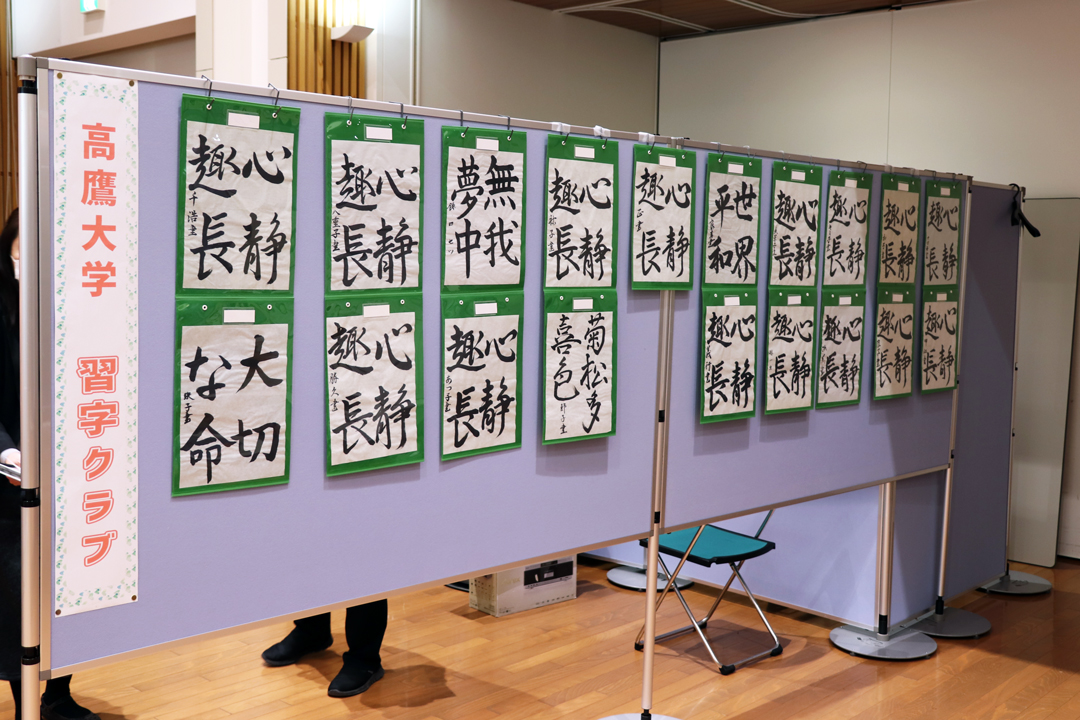 高鷹大学 習字クラブ
心静
趣長
心静
趣長
無我
夢中
心静
趣長
心静
趣長
世界
平和
心静
趣長
心静
趣長
心静
趣長
心静
趣長
大切
な命
心静
趣長
心静
趣長
菊松多
喜色
心静
趣長
心静
趣長
心静
趣長
心静
趣長
心静
趣長